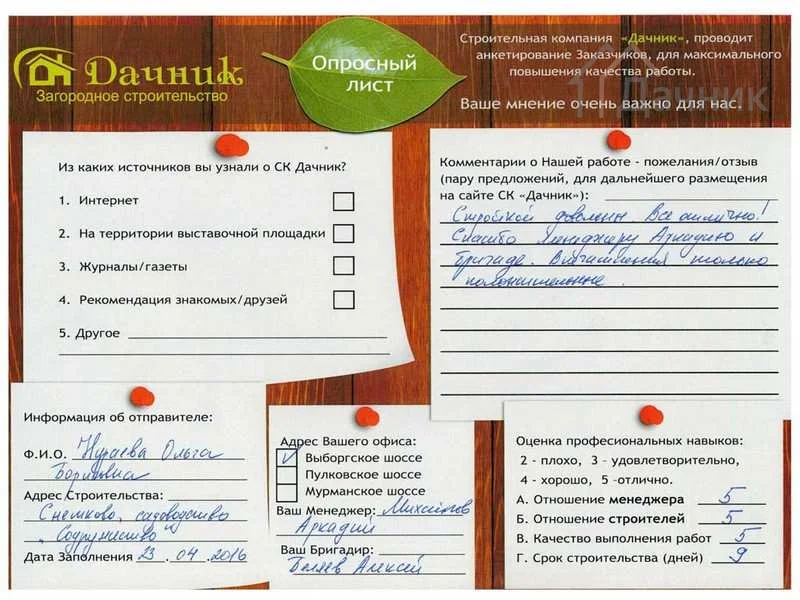 Дачник
Загородное строительство
Опросный
лист
Строительная компания «Дачник», проводит
анкетирование Заказчиков, для максимального
повышения качества работы.
Ваше мнение очень важно для нас.
Дачник
Из каких источников вы узнали о СК Дачник?
1. Интернет
2. На территории выставочной площадки
3. Журналы/газеты
4. Рекомендация знакомых/друзей
5. Другое
Комментарии о Нашей работе - пожелания/отзыв
(пару предложений, для дальнейшего размещения
на сайте СК «Дачник»):
Стройкой довольны. Все отлично!
Спасибо менеджеру Аркадию и
бригаде. Впечатления только
положительные.
Информация об отправителе:
Ф.И.О. Ольга
Борисовна
Адрес Строительства:
Снежково, садоводство
"Содружество"
Дата Заполнения 23.04.2016
Адрес Вашего офиса:
Выборгское шоссе
Пулковское шоссе
Мурманское шоссе
Ваш Менеджер: Михайлов
Аркадий
Ваш Бригадир:
Беляев Алексей
Оценка профессиональных навыков:
2 - плохо, 3 - удовлетворительно,
4 - хорошо, 5 -отлично.
А. Отношение менеджера 5
Б. Отношение строителей 5
В. Качество выполнения работ 5
Г. Срок строительства (дней) 9